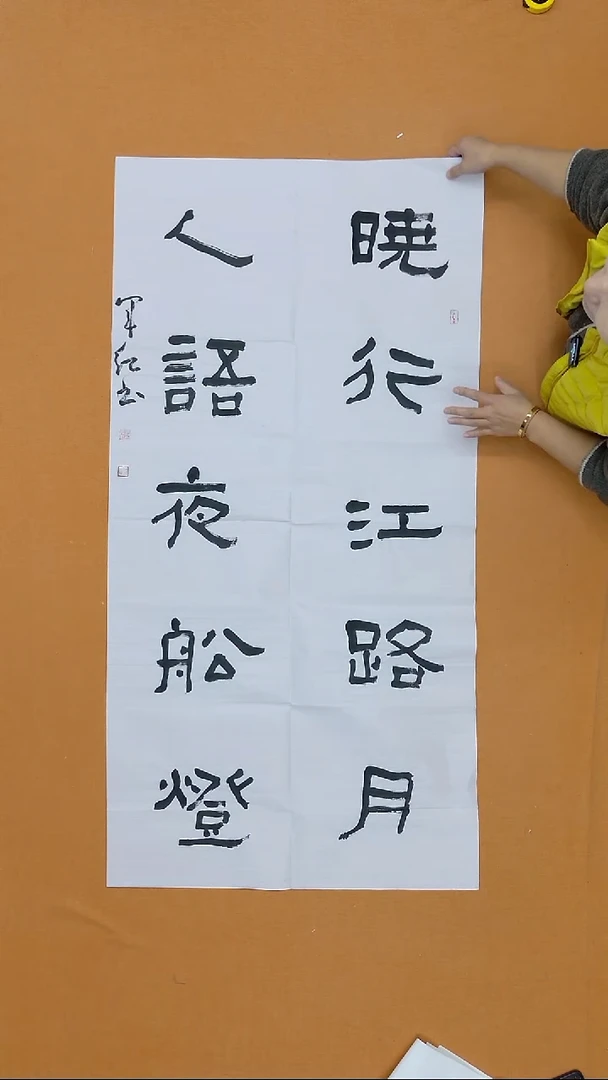 曉行江路月
人語夜船燈
軍紅书